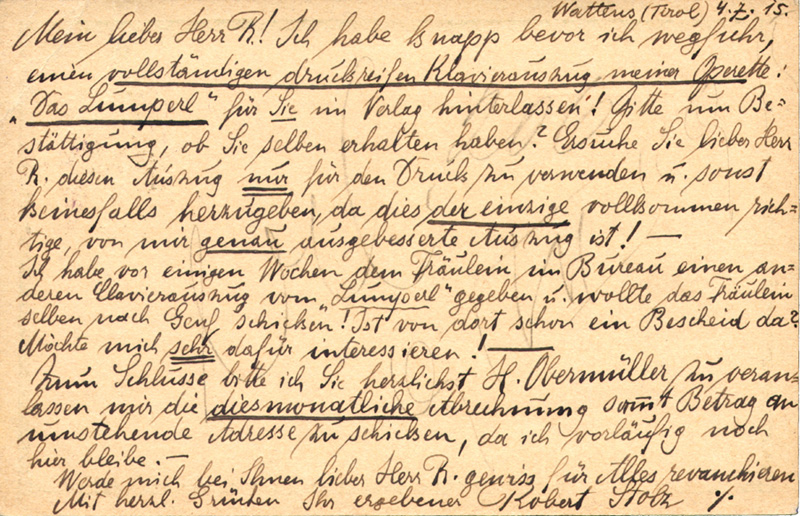 Wattens (Tirol) 4.7.15.
Mein lieber Herr R.! Ich habe knapp bevor ich wegfuhr,
einen vollständigen druckreifen Klavierauszug meiner Operette:
"Das Lumperl" für Sie im Verlag hinterlassen! Bitte um Be=
stättigung, ob Sie selben erhalten haben? Ersuche Sie lieber Herr
R. diesen Auszug nur für den Druck zu verwenden u. sonst
keinesfalls herzugeben, da dies der einzige vollkommen rich=
tige, von mir genau ausgebesserte Auszug ist! —
Ich habe vor einigen Wochen dem Fräulein im Bureau einen an=
deren Clavierauszug vom "Lumperl" gegeben u. wollte das Fräulein
selben nach Genf schicken! Ist von dort schon ein Bescheid da?
Möchte mich sehr dafür interessieren! —
Zum Schlusse bitte ich Sie herzlichst H. Obermüller zu veran=
lassen mir die diesmonatliche Abrechnung samt Betrag an
umstehende Adresse zu schicken, da ich vorläufig noch
hier bleibe. —
Werde mich bei Ihnen lieber Herr R. gewiss für Alles revanchieren
Mit herzl. Grüßen Ihr ergebener Robert Stolz ./.